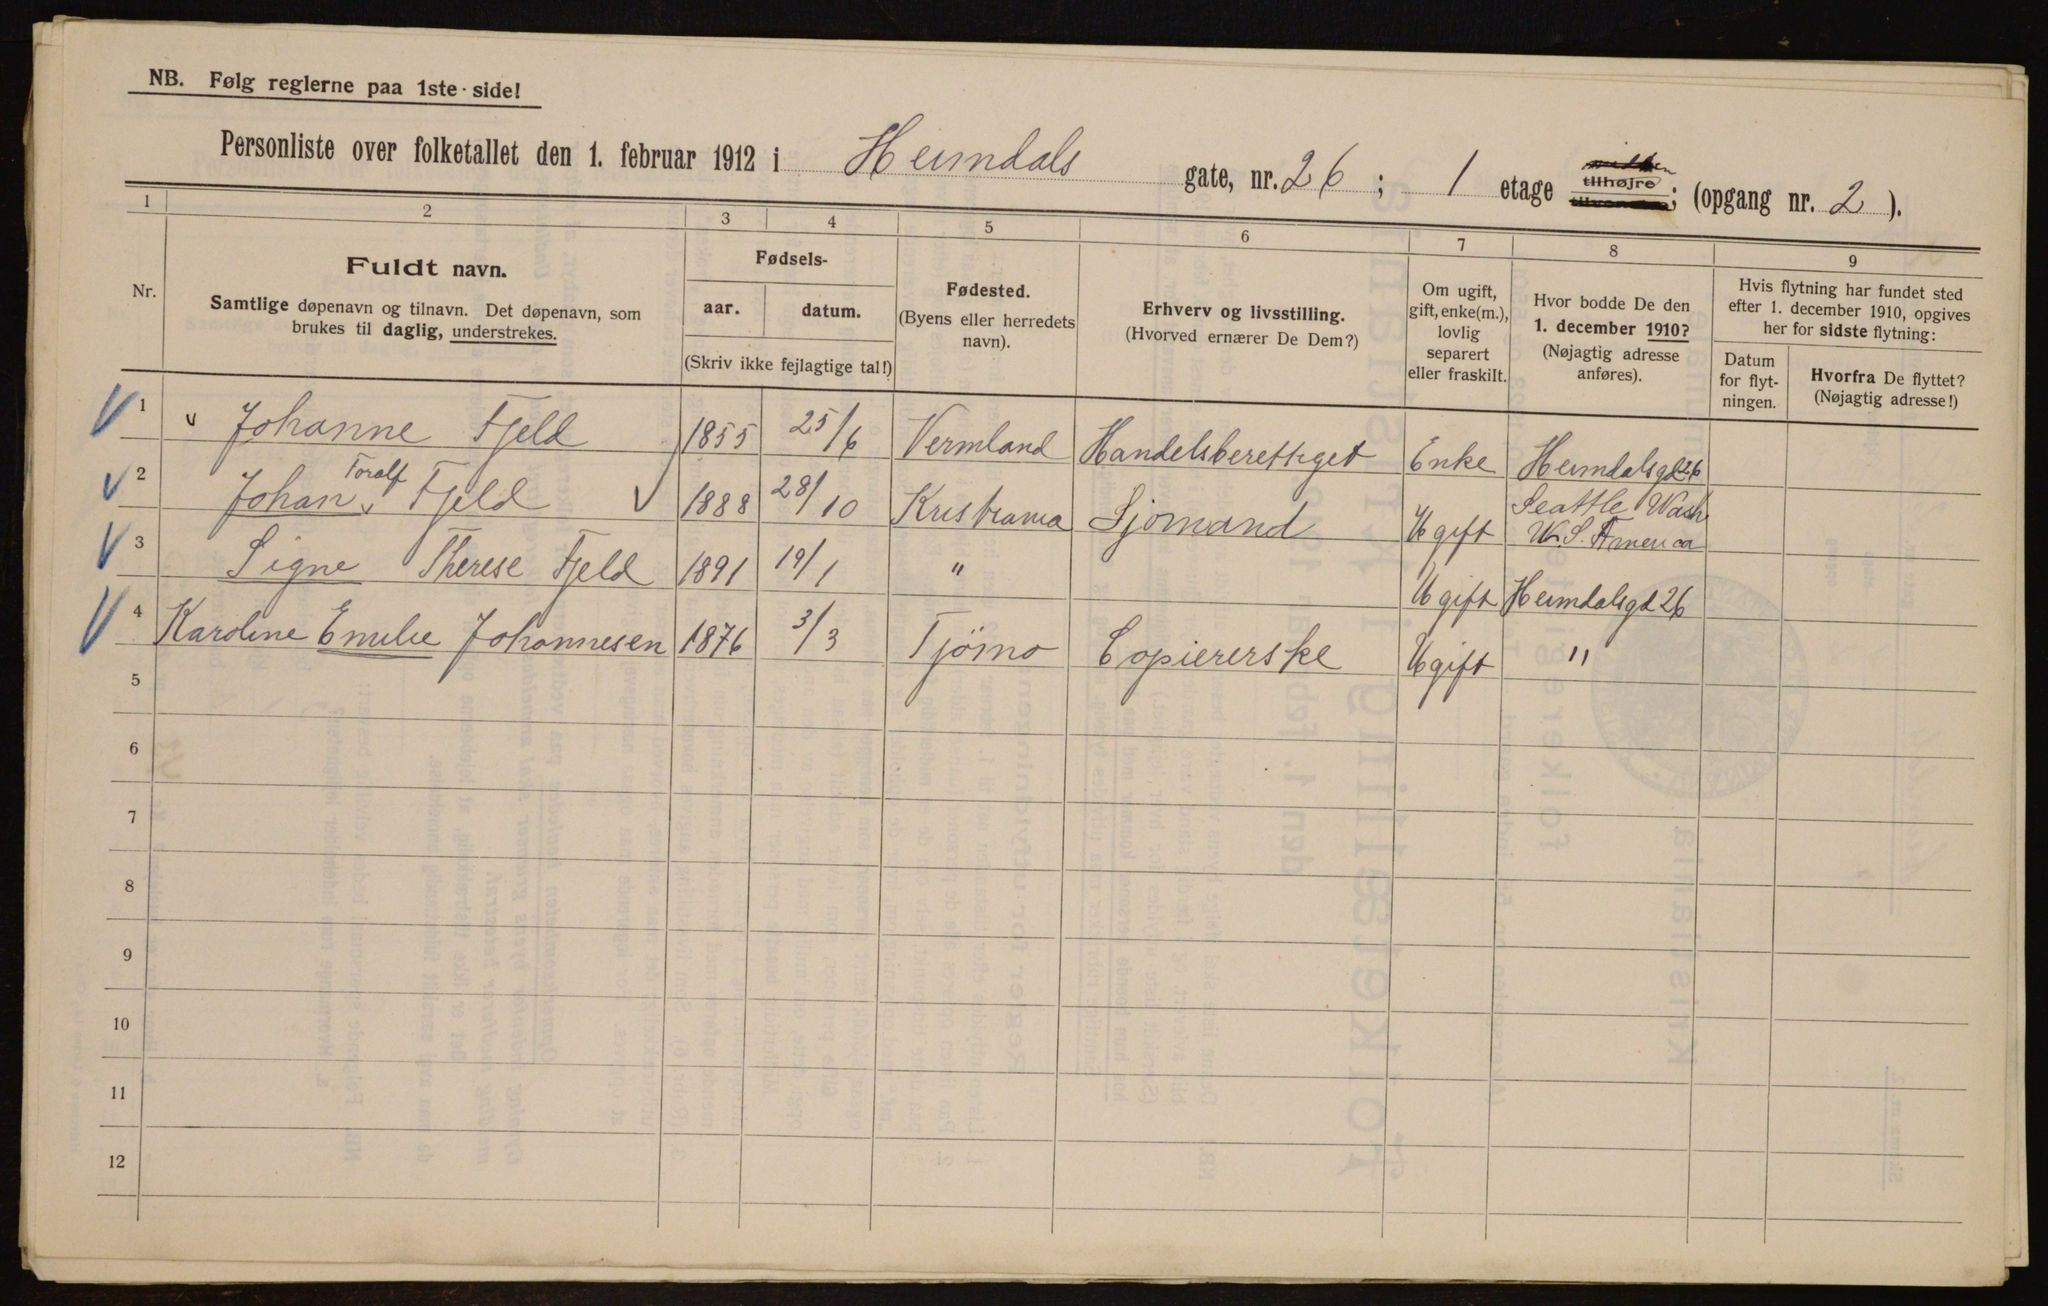 NB. Følg reglerne paa 1ste side!
Personliste over folketallet den 1. februar 1912 i Heimdals gate, nr. 26; 1 etage tilhøjre; (opgang nr. 2).
1 2 3 4 5 6 7 8 9
Nr.
Fuldt navn.
Samtlige døpenavn og tilnavn. Det døpenavn, som
brukes til daglig, understrekes.
Fødsels-
aar. datum.
(Skriv ikke fejlagtige tal!)
Fødested.
(Byens eller herredets
navn).
Erhverv og livsstilling.
(Hvorved ernærer De Dem?)
Om ugift,
gift, enke(m.),
lovlig
separert
eller fraskilt.
Hvor bodde De den
1. december 1910?
(Nøjagtig adresse
anføres).
Hvis flytning har fundet sted
efter 1. december 1910, opgives
her for sidste flytning:
Datum
for flyt-
ningen.
Hvorfra De flyttet?
(Nøjagtig adresse!)
1 Johanne Fjeld 1855 25/6 Vermland Handelsberettiget Enke Heimdalsgd 26
2 Johan Toralf Fjeld 1888 28/10 Kristiania Sjømand Ugift Seattle Wash.
U.S. America
3 Signe Therese Fjeld 1891 19/1 " Ugift Heimdalsgd 26
4 Karoline Emilie Johannesen 1876 3/3 Tjømo Copiererske Ugift "
5
6
7
8
9
10
11
12